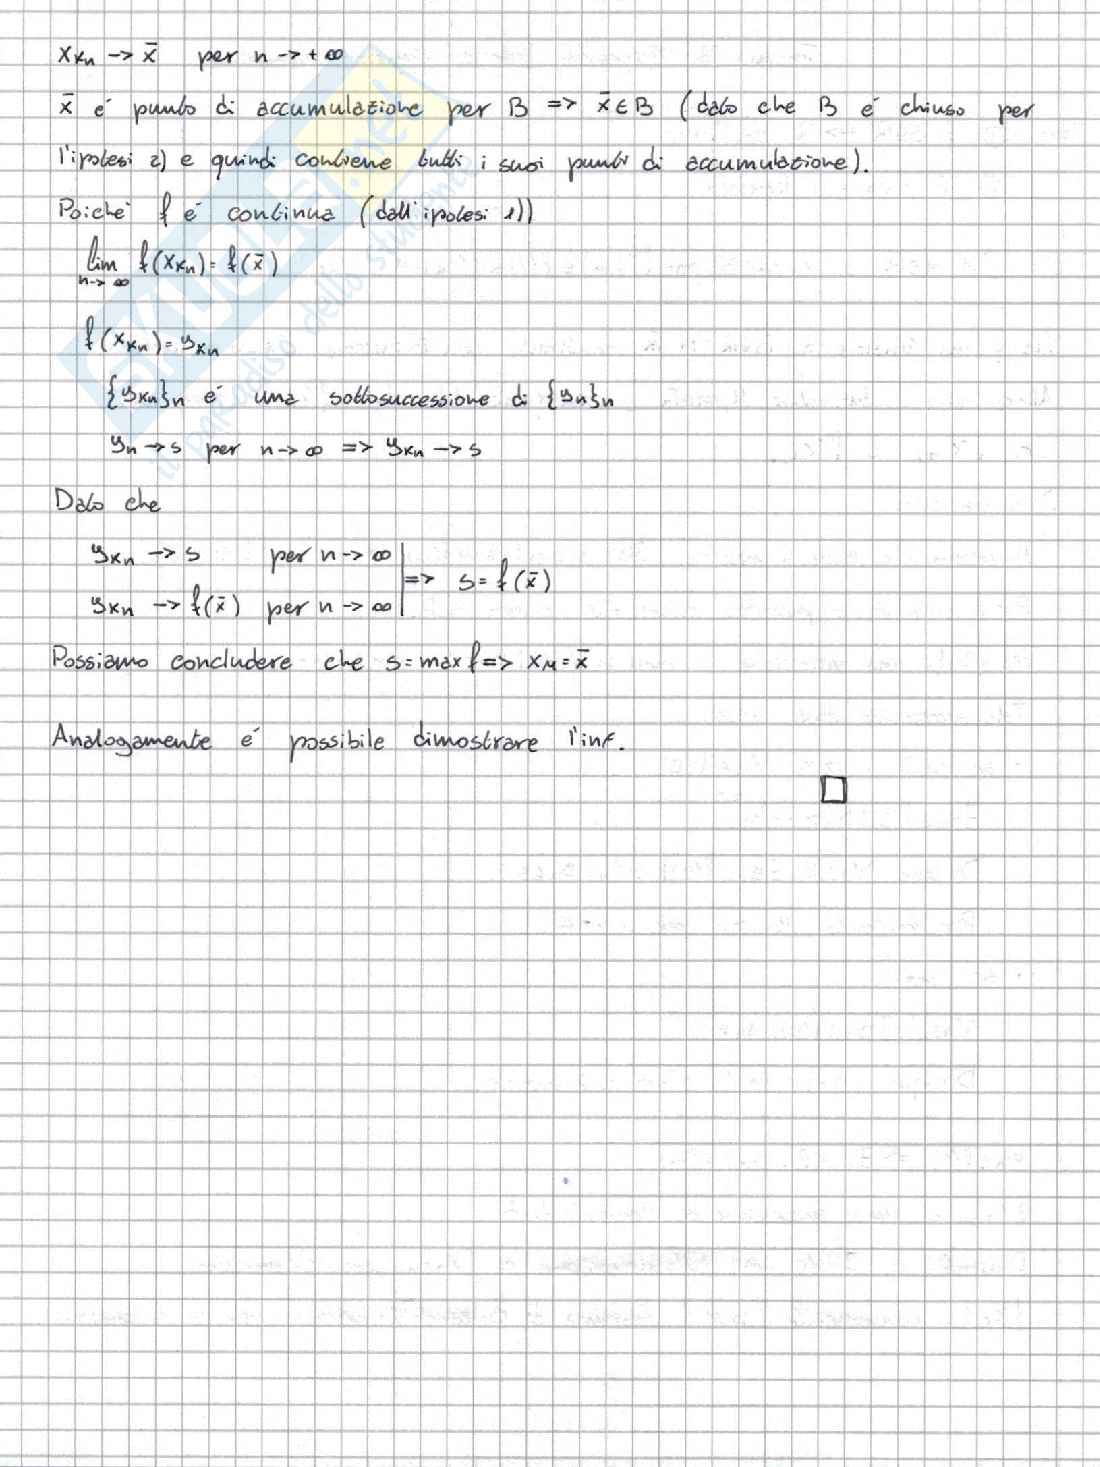 x_{k_n} -> x̄ per n -> +∞
x̄ é punto di accumulazione per B => x̄ ∈ B (dato che B é chiuso per
l'ipotesi 2) e quindi contiene tutti i suoi punti di accumulazione).
Poiché f é continua (dall'ipotesi 1))
lim_{n->∞} f(x_{k_n}) = f(x̄)
f(x_{k_n}) = y_{k_n}
{y_{k_n}}_n é una sottosuccessione di {y_n}_n
y_n -> s per n -> ∞ => y_{k_n} -> s
Dato che
y_{k_n} -> s per n -> ∞
y_{k_n} -> f(x̄) per n -> ∞ | => s = f(x̄)
Possiamo concludere che s = max f => x_M = x̄
Analogamente é possibile dimostrare l'inf.
SKUOLA.net
il paradiso dello studente